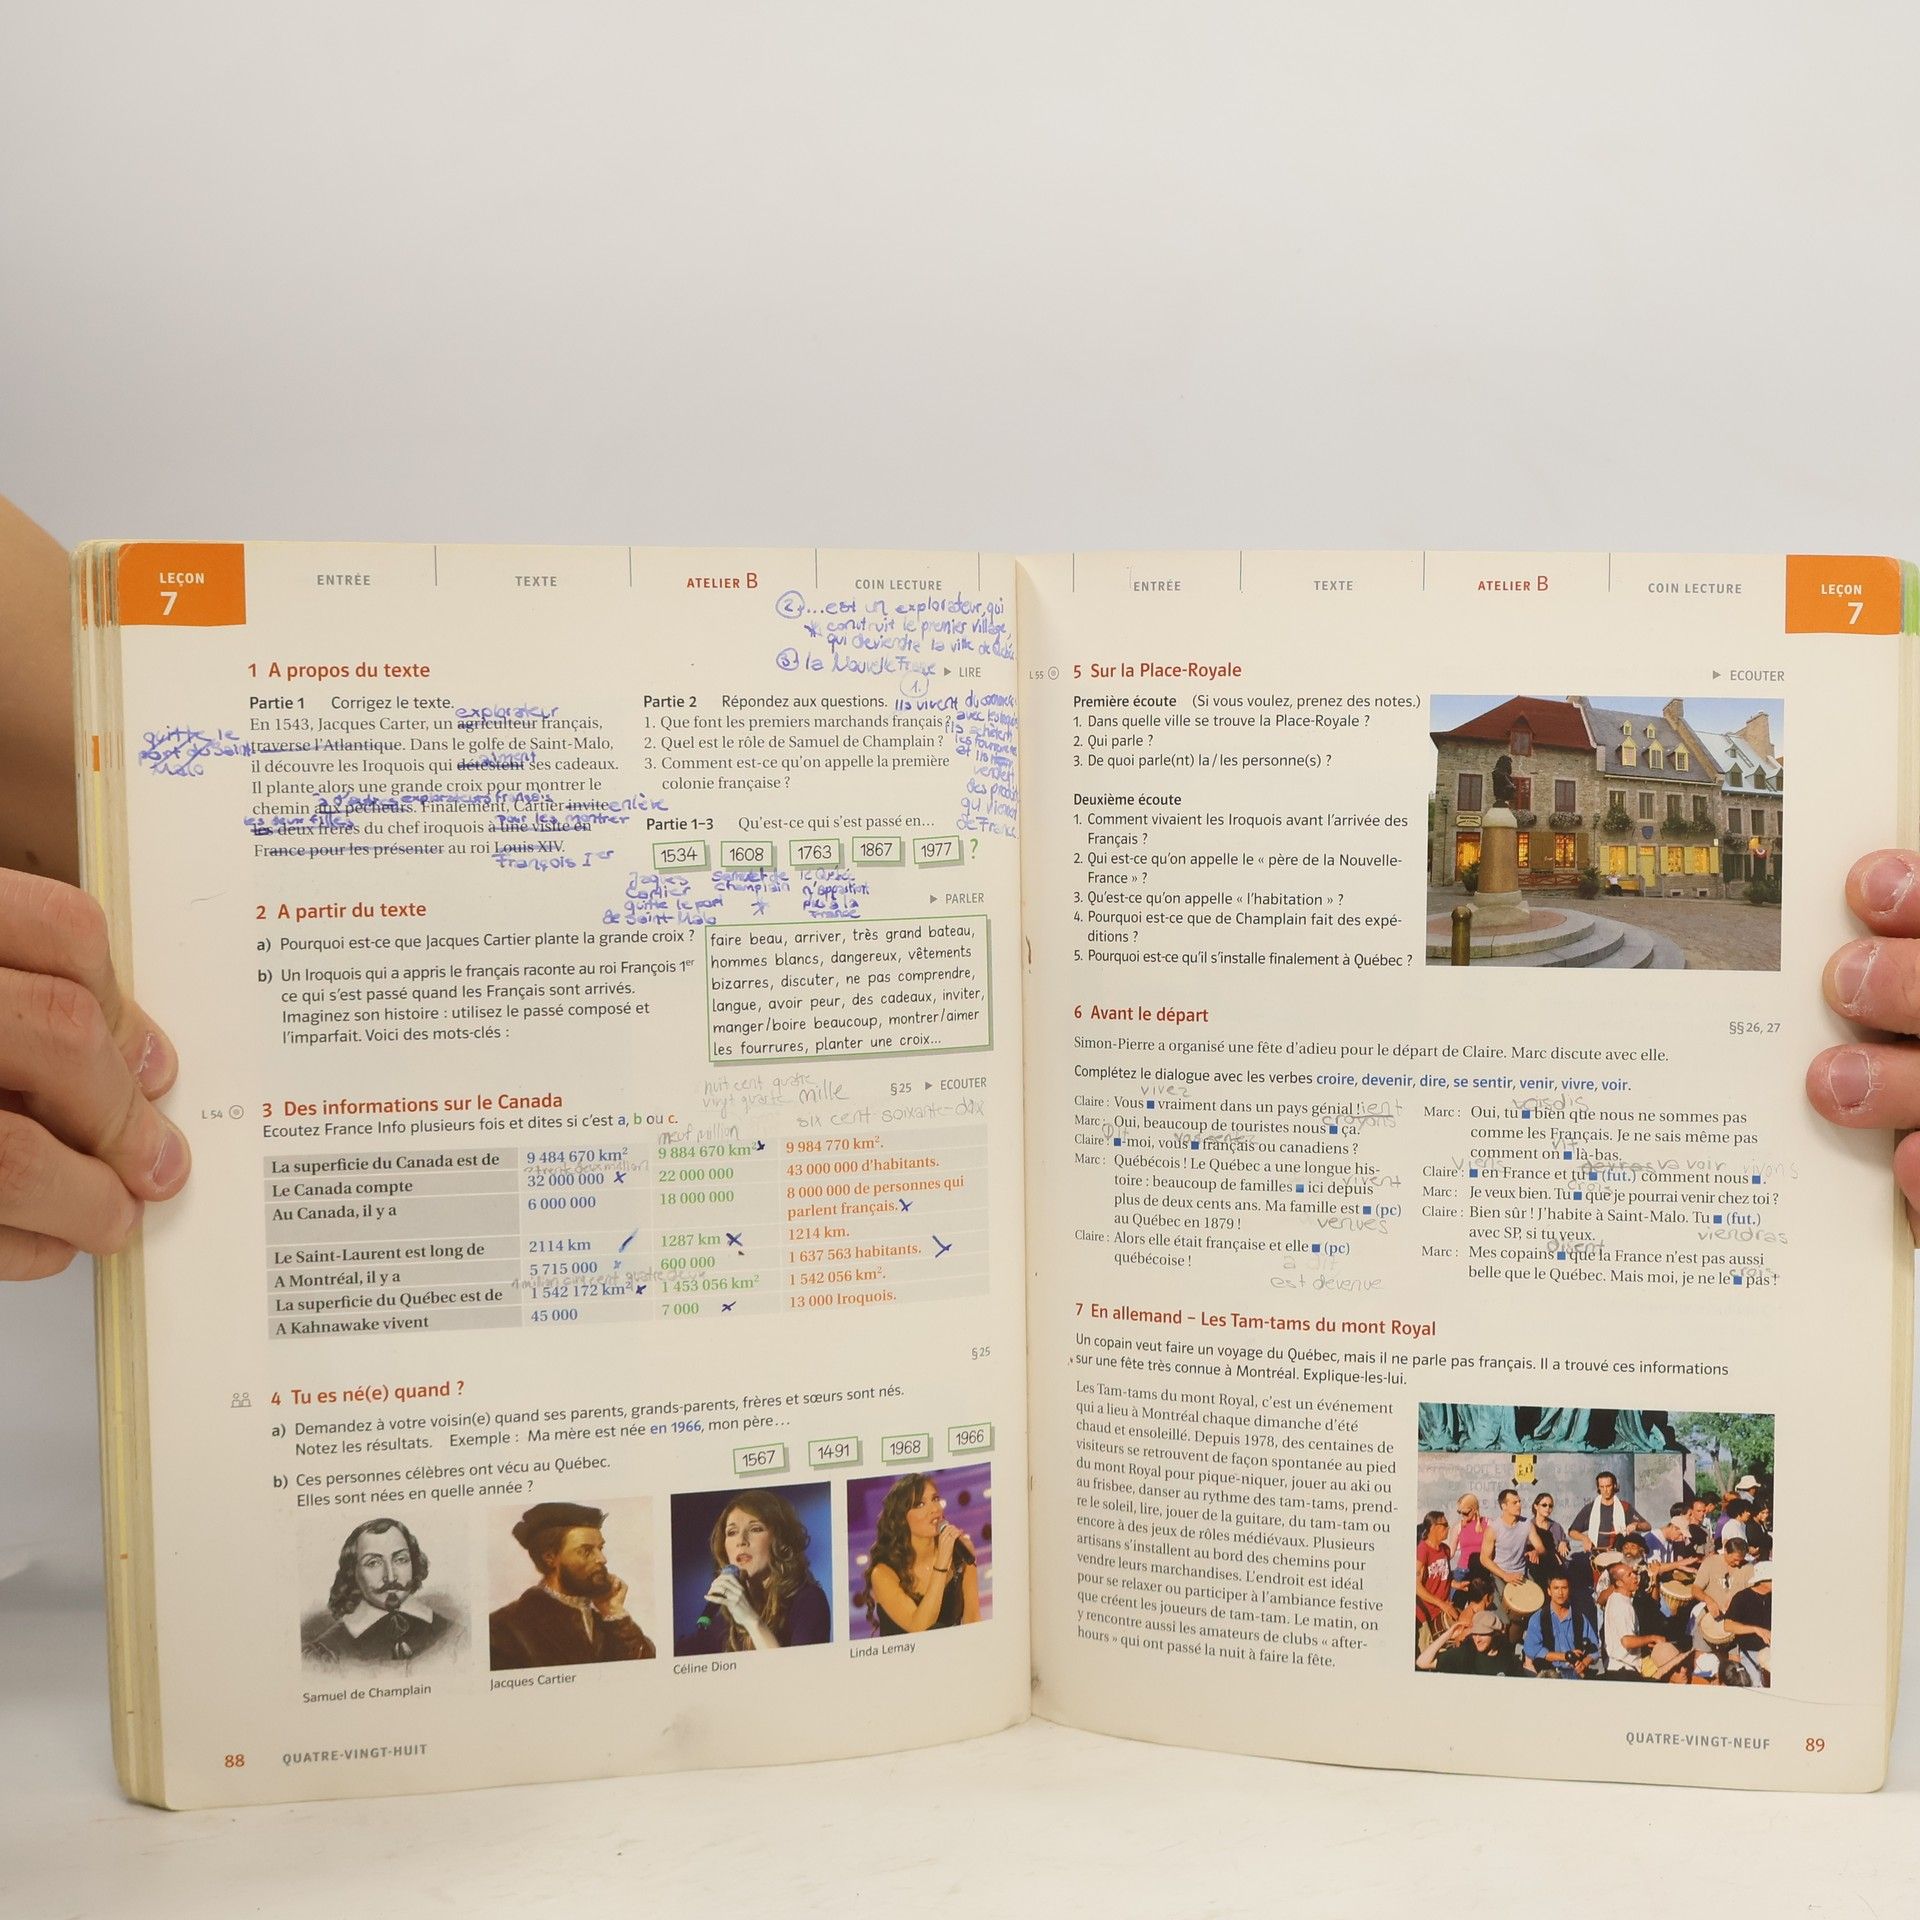 LEÇON
7
ENTRÉE
TEXTE
ATELIER B
COIN LECTURE
② ...est un explorateur, qui
construit le premier village,
qui deviendra la ville de
③ la Nouvelle France
1 A propos du texte
▶ LIRE
Partie 1 Corrigez le texte.
explorateur
En 1543, Jacques Carter, un agriculteur français,
quitte le
port de Saint
Malo
traverse l'Atlantique. Dans le golfe de Saint-Malo,
aiment
il découvre les Iroquois qui détestent ses cadeaux.
Il plante alors une grande croix pour montrer le
à d'autres explorateurs français
chemin aux pêcheurs. Finalement, Cartier invite enlève
les deux filles
pour les montrer
les deux frères du chef iroquois à une visite en
France pour les présenter au roi Louis XIV.
François Ier
Partie 2 Répondez aux questions.
1. Que font les premiers marchands français ?
2. Quel est le rôle de Samuel de Champlain ?
3. Comment est-ce qu'on appelle la première
colonie française ?
1.
Ils vivent du
avec les
ils achètent
les
et ils
vendent
des produits
qui viennent
de France
Partie 1–3 Qu'est-ce qui s'est passé en…
1534
1608
1763
1867
1977
?
Jaques
Cartier
quitte le port
de Saint-Malo
Samuel de
Champlain
le Québec
n'
plus à la
France
2 A partir du texte
▶ PARLER
a) Pourquoi est-ce que Jacques Cartier plante la grande croix ?
b) Un Iroquois qui a appris le français raconte au roi François 1er
ce qui s'est passé quand les Français sont arrivés.
Imaginez son histoire : utilisez le passé composé et
l'imparfait. Voici des mots-clés :
faire beau, arriver, très grand bateau,
hommes blancs, dangereux, vêtements
bizarres, discuter, ne pas comprendre,
langue, avoir peur, des cadeaux, inviter,
manger/boire beaucoup, montrer/aimer
les fourrures, planter une croix…
huit cent quatre
vingt quatre mille
six cent-soixante-dix
neuf million
§25 ▶ ECOUTER
L 54
3 Des informations sur le Canada
Ecoutez France Info plusieurs fois et dites si c'est a, b ou c.
La superficie du Canada est de 9 484 670 km² 9 884 670 km² 9 984 770 km².
Le Canada compte 32 000 000 22 000 000 43 000 000 d'habitants.
Au Canada, il y a 6 000 000 18 000 000 8 000 000 de personnes qui
parlent français.
Le Saint-Laurent est long de 2114 km 1287 km 1214 km.
A Montréal, il y a 5 715 000 600 000 1 637 563 habitants.
La superficie du Québec est de 1 542 172 km² 1 453 056 km² 1 542 056 km².
A Kahnawake vivent 45 000 7 000 13 000 Iroquois.
§25
4 Tu es né(e) quand ?
a) Demandez à votre voisin(e) quand ses parents, grands-parents, frères et sœurs sont nés.
Notez les résultats. Exemple : Ma mère est née en 1966, mon père…
b) Ces personnes célèbres ont vécu au Québec.
Elles sont nées en quelle année ?
1567
1491
1968
1966
Samuel de Champlain
Jacques Cartier
Céline Dion
Linda Lemay
88 QUATRE-VINGT-HUIT
ENTRÉE
TEXTE
ATELIER B
COIN LECTURE
LEÇON
7
L 55
5 Sur la Place-Royale
▶ ECOUTER
Première écoute (Si vous voulez, prenez des notes.)
1. Dans quelle ville se trouve la Place-Royale ?
2. Qui parle ?
3. De quoi parle(nt) la / les personne(s) ?
Deuxième écoute
1. Comment vivaient les Iroquois avant l'arrivée des
Français ?
2. Qui est-ce qu'on appelle le « père de la Nouvelle-
France » ?
3. Qu'est-ce qu'on appelle « l'habitation » ?
4. Pourquoi est-ce que de Champlain fait des expé-
ditions ?
5. Pourquoi est-ce qu'il s'installe finalement à Québec ?
6 Avant le départ
§§ 26, 27
Simon-Pierre a organisé une fête d'adieu pour le départ de Claire. Marc discute avec elle.
Complétez le dialogue avec les verbes croire, devenir, dire, se sentir, venir, vivre, voir.
vivez
Claire : Vous ■ vraiment dans un pays génial !
croyons
Marc : Oui, beaucoup de touristes nous ■ ça.
Claire : ■-moi, vous ■ français ou canadiens ?
Marc : Québécois ! Le Québec a une longue his-
vivent
toire : beaucoup de familles ■ ici depuis
plus de deux cents ans. Ma famille est ■ (pc)
venues
au Québec en 1879 !
Claire : Alors elle était française et elle ■ (pc)
québécoise !
a dit
est devenue
Marc : Oui, tu ■ bien que nous ne sommes pas
comme les Français. Je ne sais même pas
vit
comment on ■ là-bas.
viens
va voir vivons
Claire : ■ en France et tu ■ (fut.) comment nous ■.
crois
Marc : Je veux bien. Tu ■ que je pourrai venir chez toi ?
Claire : Bien sûr ! J'habite à Saint-Malo. Tu ■ (fut.)
viendras
avec SP, si tu veux.
disent
Marc : Mes copains ■ que la France n'est pas aussi
crois
belle que le Québec. Mais moi, je ne le ■ pas !
7 En allemand – Les Tam-tams du mont Royal
Un copain veut faire un voyage du Québec, mais il ne parle pas français. Il a trouvé ces informations
sur une fête très connue à Montréal. Explique-les-lui.
Les Tam-tams du mont Royal, c'est un événement
qui a lieu à Montréal chaque dimanche d'été
chaud et ensoleillé. Depuis 1978, des centaines de
visiteurs se retrouvent de façon spontanée au pied
du mont Royal pour pique-niquer, jouer au aki ou
au frisbee, danser au rythme des tam-tams, prend-
re le soleil, lire, jouer de la guitare, du tam-tam ou
encore à des jeux de rôles médiévaux. Plusieurs
artisans s'installent au bord des chemins pour
vendre leurs marchandises. L'endroit est idéal
pour se relaxer ou participer à l'ambiance festive
que créent les joueurs de tam-tam. Le matin, on
y rencontre aussi les amateurs de clubs « after-
hours » qui ont passé la nuit à faire la fête.
QUATRE-VINGT-NEUF 89